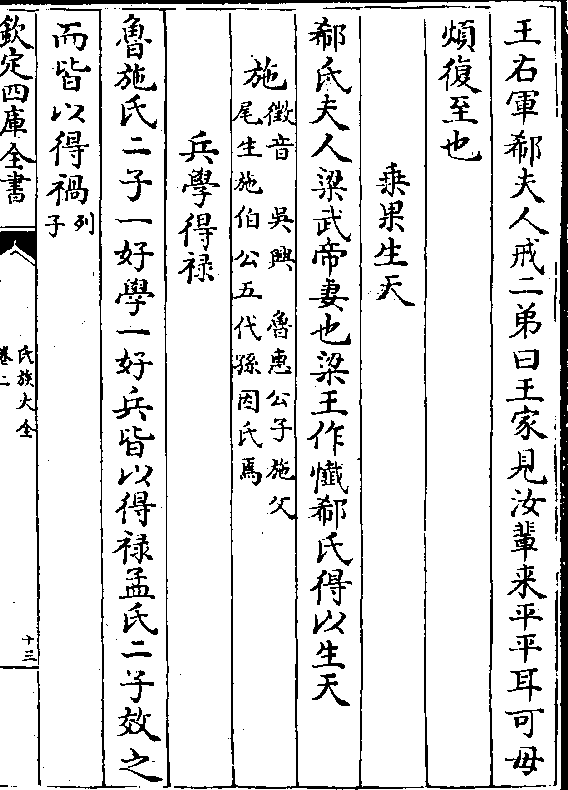 王右軍郗夫人戒二弟曰王家見汝輩来平平耳可毋
煩復至也
乗果生天
郗氏夫人梁武帝妻也梁王作懺郗氏得以生天
施徵音 吳興 魯惠公子施父
尾生施伯公五代孫因氏焉
兵學得禄
魯施氏二子一好學一好兵皆以得禄孟氏二子效之
而皆以得禍列
子
欽定四庫全書
氏族大全
卷二
十三